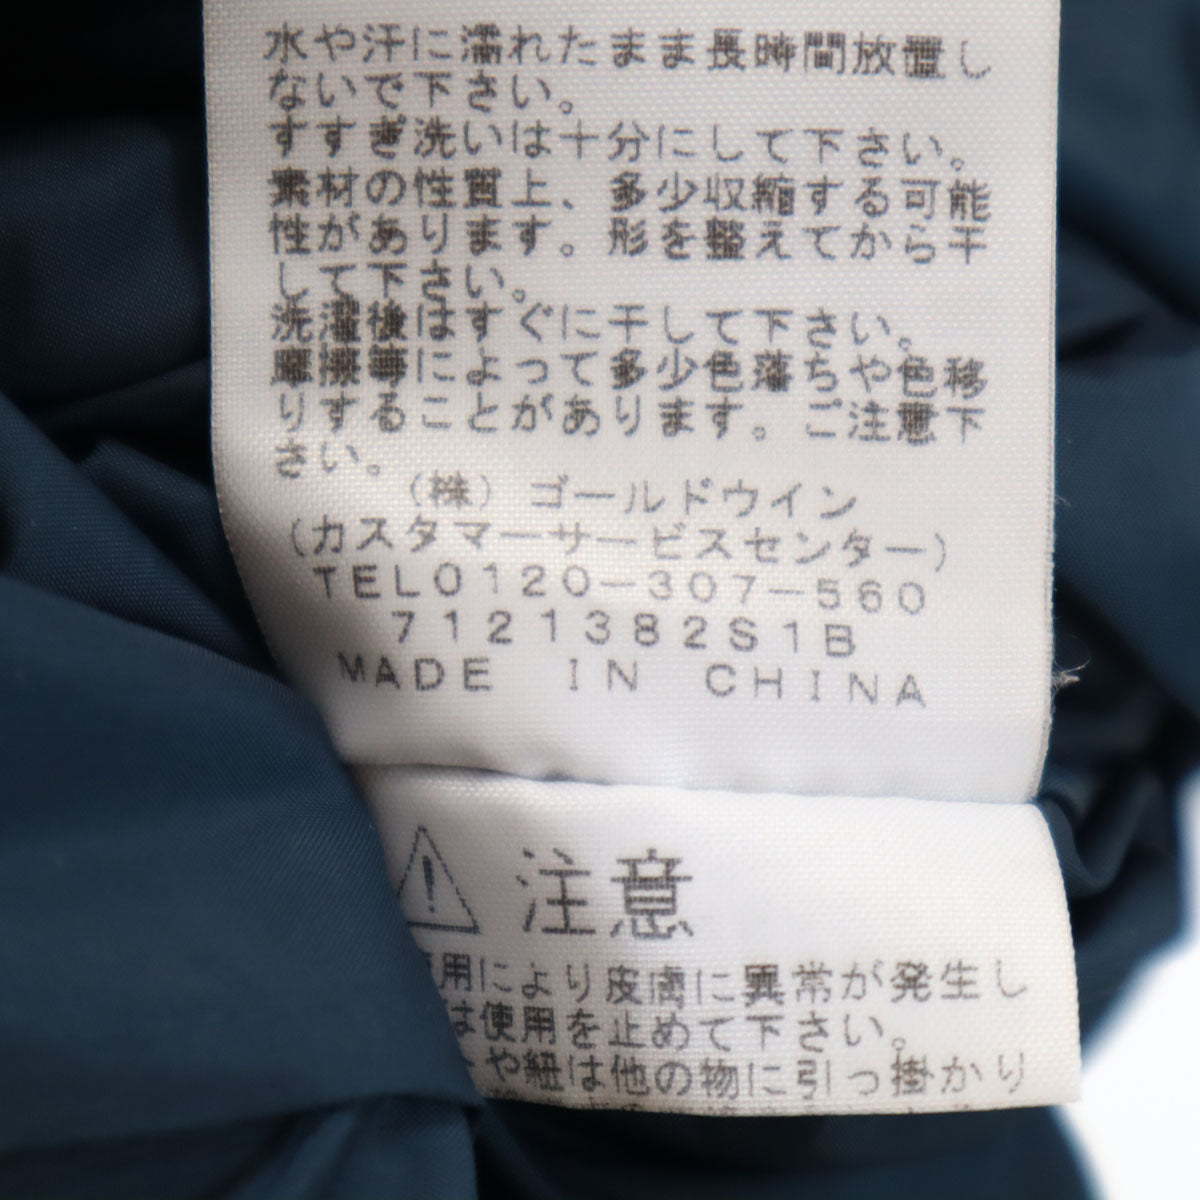 水や汗に濡れたまま長時間放置し
ないで下さい。
すすぎ洗いは十分にして下さい。
素材の性質上、多少収縮する可能
性があります。形を整えてから干
して下さい。
洗濯後はすぐに干して下さい。
摩擦等によって多少色落ちや色移
りすることがあります。ご注意下
さい。
(株)ゴールドウイン
(カスタマーサービスセンター)
TEL0120-307-560
7121382S1B
MADE IN CHINA
注意
用により皮膚に異常が発生し
は使用を止めて下さい。
や紐は他の物に引っ掛かり